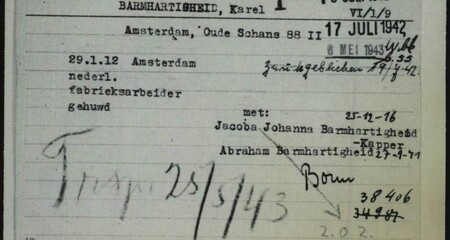 BARMHARTIGHEID, Karel
VI/1/9
Amsterdam, Oude Schans 88 II
17 JULI 1942
6 MEI 1943
29.1.12 Amsterdam
nederl.
fabrieksarbeider
gehuwd
met: 25-12-16
Jacoba Johanna Barmhartigheid
-Kapper
Abraham Barmhartigheid 27-9-41
Trspt 25/5/43
38406
34987
Z.O.Z.